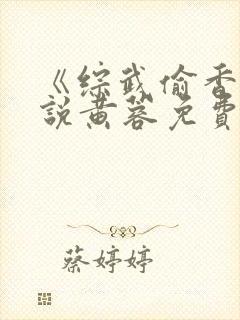 《综武偷香
說黄蓉免費
蔡婷婷